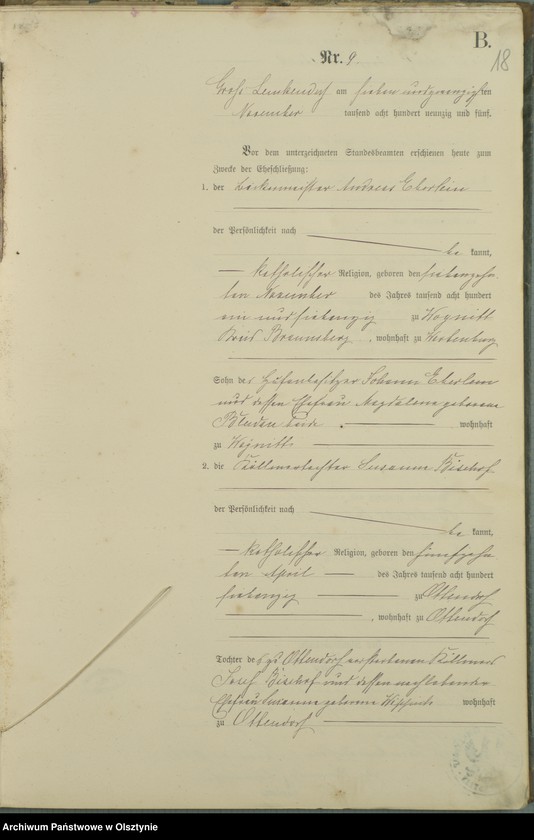 B.
18
Nr. 9.
Groß Lemkendorf am sieben und zwanzigsten
November tausend acht hundert neunzig und fünf.
Vor dem unterzeichneten Standesbeamten erschienen heute zum
Zwecke der Eheschließung:
1. der Bäckermeister Andreas Eberlein
der Persönlichkeit nach
be kannt,
katholischer Religion, geboren den siebenzehn
ten November des Jahres tausend acht hundert
ein und siebenzig zu
Kreis Braunsberg, wohnhaft zu Wartenburg
Sohn des Hufenbesitzer Johann Eberlein
und dessen Ehefrau Magdalena geborene
beide wohnhaft
zu
2. die Köllmertochter Susanna Bischof
der Persönlichkeit nach
be kannt,
katholischer Religion, geboren den fünfzehn
ten April des Jahres tausend acht hundert
siebenzig zu Ottendorf
, wohnhaft zu Ottendorf
Tochter des zu Ottendorf verstorbenen Köllmers
Josef Bischof und dessen nachlebender
Ehefrau Susanna geborene wohnhaft
zu Ottendorf
Archiwum Państwowe w Olsztynie